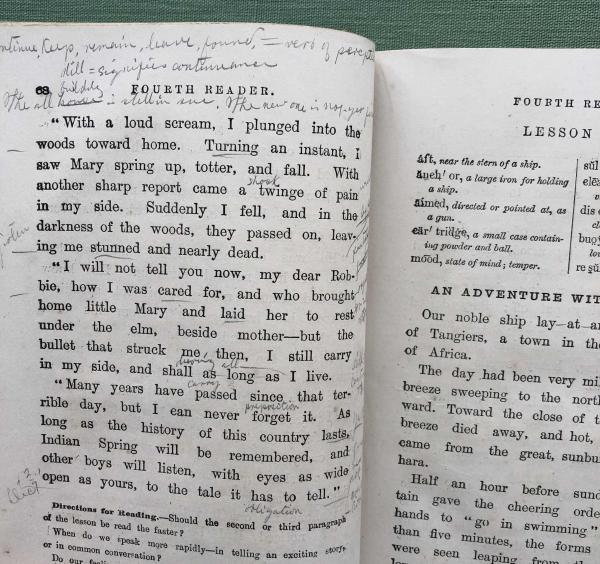 ntinue, Keep, remain, leave, found, = verb of percept
still = signifies continuance
building
68 FOURTH READER.
The old house is still in use. The new one is not yet
"With a loud scream, I plunged into the
woods toward home. Turning an instant, I
saw Mary spring up, totter, and fall. With
shock
another sharp report came a twinge of pain
in my side. Suddenly I fell, and in the
darkness of the woods, they passed on, leav-
ing me stunned and nearly dead.
"I will not tell you now, my dear Rob-
bie, how I was cared for, and who brought
home little Mary and laid her to rest
under the elm, beside mother—but the
bullet that struck me then, I still carry
during all
in my side, and shall as long as I live.
carry
"Many years have passed since that ter-
preposition
rible day, but I can never forget it. As
long as the history of this country lasts,
Indian Spring will be remembered, and
other boys will listen, with eyes as wide
open as yours, to the tale it has to tell."
obligation
Directions for Reading.—Should the second or third paragraph
of the lesson be read the faster?
When do we speak more rapidly—in telling an exciting story,
or in common conversation?
Do our
FOURTH RE
LESSON
áft, near the stern of a ship.
or, a large iron for holding
a ship.
aimed, directed or pointed at, as
a gun.
tridge, a small case contain-
ing powder and ball.
mood, state of mind; temper.
AN ADVENTURE WIT
Our noble ship lay at an
of Tangiers, a town in the
of Africa.
The day had been very mil
breeze sweeping to the north
ward. Toward the close of t
breeze died away, and hot,
came from the great, sunbu
hara.
Half an hour before sund
tain gave the cheering orde
hands to "go in swimming"
than five minutes, the forms
were seen leaping from the